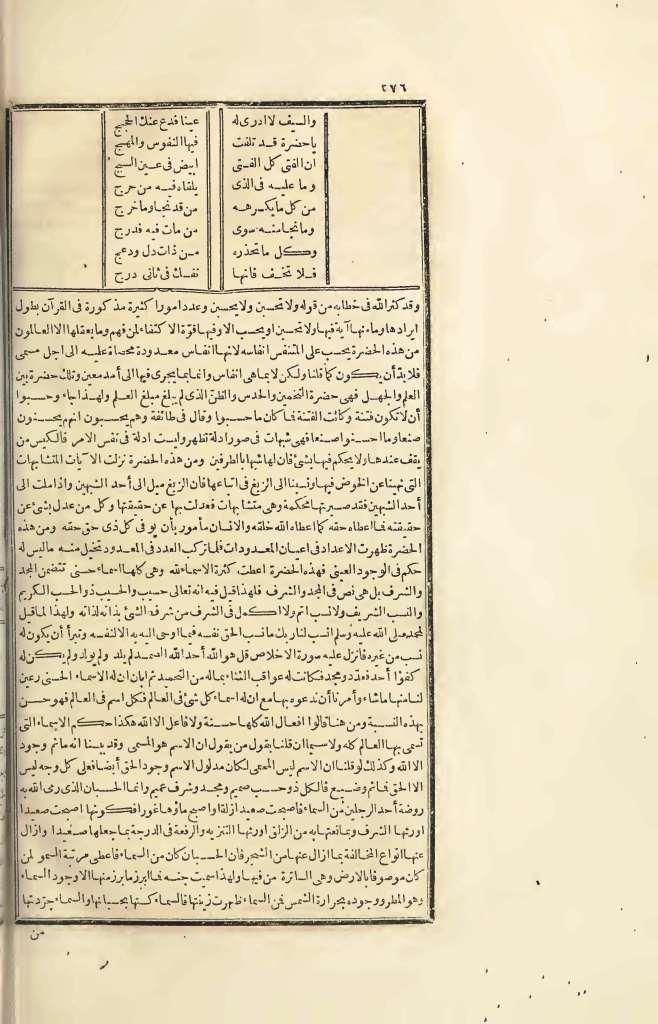 ٢٧٦
والسيف لا ادرى له عينا فدع عنك الحجج
يا حضرة قد تلفت فيها النفوس والمهج
ان الفتى كل الفتى ابيض فى عين السبج
وما عليه فى الذى يلقاه فيه من حرج
من كل ما يكرهه من قد نجا وما خرج
وما نجا منه سوى من مات فيه فدرج
وكل ما تحذره من ذات دل ودعج
فلا تخف فانها نفسك فى ثانى درج
وقد كثر الله فى خطابه من قوله ولا تحسبن ولا يحسبن وعدد امورا كثيرة مذكورة فى القرآن يطول
ايرادها وما منها آية فيها ولا تحسبن او يحسب الا وفيها قوة الاكتفاء لمن فهم وما يعقلها الا العالمون
من هذه الحضرة يحسب على المتنفس انفاسه لانها انفاس معدودة محصاة عليه الى اجل مسمى
فلا بد أن يكون كما قلنا ولكن لا بما هى انفاس وانما بما يجرى فيها الى أمد معين وتلك حضرة بين
العلم والجهل فهى حضرة التخمين والحدس والظن الذى لم يبلغ مبلغ العلم ولهذا جاء وحسبوا
أن لا تكون فتنة وكانت الفتنة فما كان ما حسبوا وقال فى طائفة وهم يحسبون انهم يحسنون
صنعا وما احسنوا صنعا فهى شبهات فى صور ادلة تظهر وليست ادلة فى نفس الامر فالكيس من
يقف عندها ولا يحكم فيها بشئ فان لها شبها بالطرفين ومن هذه الحضرة نزلت الآيات المتشابهات
التى نهينا عن الخوض فيها ونسبنا الى الزيغ فى اتباعها فان الزيغ ميل الى أحد الشبهين واذا ملت الى
أحد الشبهين فقد صيرتها محكمة وهى متشابهات فعدلت بها عن حقيقتها وكل من عدل بشئ عن
حقيقته فما اعطاه حقه كما اعطاه الله خلقه والانسان مأمور بأن يوفى كل ذى حق حقه ومن هذه
الحضرة ظهرت الاعداد فى اعيان المعدودات فلما تركب العدد فى المعدود تخيل منه ما ليس له
حكم فى الوجود العينى فهذه الحضرة اعطت كثرة الاسماء لله وهى كلها اسماء حسنى تتضمن المجد
والشرف بل هى نص فى المجد والشرف فلهذا قيل فيه انه تعالى حسيب والحسيب ذو الحسب الكريم
والنسب الشريف ولا نسب اتم ولا اكمل فى الشرف من شرف الشئ بذاته لذاته ولهذا لما قيل
لمحمد صلى الله عليه وسلم انسب لنا ربك ما نسب الحق نفسه فيما اوحى اليه به الا لنفسه وتبرأ أن يكون له
نسب من غيره فانزل عليه سورة الاخلاص قل هو الله أحد الله الصمد لم يلد ولم يولد ولم يكن له
كفوا أحد فعدد ومجد فكانت له عواقب الثناء بما له من التحميد ثم ابان ان له الاسماء الحسنى وعين
لنا منها ما شاء وأمرنا أن ندعوه بها مع ان له اسماء كل شئ فى العالم فكل اسم فى العالم فهو حسن
بهذه النسبة ومن هنا قالوا افعال الله كلها حسنة ولا فاعل الا الله هكذا حكم الاسماء التى
تسمى بها العالم كله ولا سيما ان قلنا بقول من يقول ان الاسم هو المسمى وقد بينا انه ما ثم وجود
الا الله وكذلك لو قلنا ان الاسم ليس المسمى لكان مدلول الاسم وجود الحق أيضا فعلى كل وجه ليس
الا الحق فما ثم وضيع فالكل ذو حسب صميم ومجد وشرف عميم وانما الحسبان الذى رمى الله به
روضة أحد الرجلين من السماء فاصبحت صعيدا زلقا واصبح ماؤها غورا فكونها اصبحت صعيدا
اورثها الشرف وبما نعتها به من الزلق اورثها التنزيه والرفعة فى الدرجة بما جعلها صعيدا وازال
عنها انواع المخالفة بما ازال عنها من الشجر فان الحسبان كان من السماء فاعطى مرتبة السمو لمن
كان موصوفا بالارض وهى الساترة من فيها ولهذا سميت جنة فما ابرز ما برز منها الا وجود السماء
وهو المطر ووجوده بحرارة الشمس فمن السماء ظهرت زينتها فالسماء كستها بحسبانها والسماء جردتها
من